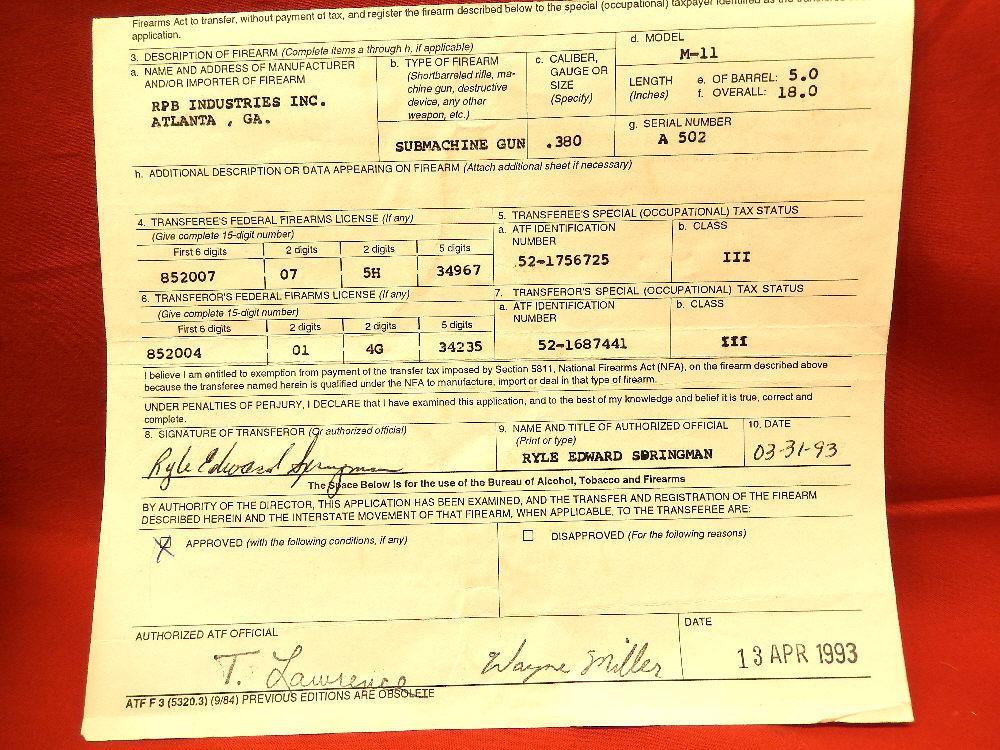 Firearms Act to transfer, without payment of tax, and register the firearm described below to the special (occupational) taxpayer identified as the
application.
3. DESCRIPTION OF FIREARM (Complete items a through h, if applicable)
a. NAME AND ADDRESS OF MANUFACTURER
AND/OR IMPORTER OF FIREARM
RPB INDUSTRIES INC.
ATLANTA , GA.
b. TYPE OF FIREARM
(Shortbarreled rifle, ma-
chine gun, destructive
device, any other
weapon, etc.)
SUBMACHINE GUN
c. CALIBER,
GAUGE OR
SIZE
(Specify)
.380
d. MODEL
M-11
LENGTH
(Inches)
e. OF BARREL: 5.0
f. OVERALL: 18.0
g. SERIAL NUMBER
A 502
h. ADDITIONAL DESCRIPTION OR DATA APPEARING ON FIREARM (Attach additional sheet if necessary)
4. TRANSFEREE'S FEDERAL FIREARMS LICENSE (If any)
(Give complete 15-digit number)
First 6 digits 2 digits 2 digits 5 digits
852007 07 5H 34967
5. TRANSFEREE'S SPECIAL (OCCUPATIONAL) TAX STATUS
a. ATF IDENTIFICATION
NUMBER
52-1756725
b. CLASS
III
6. TRANSFEROR'S FEDERAL FIRARMS LICENSE (If any)
(Give complete 15-digit number)
First 6 digits 2 digits 2 digits 5 digits
852004 01 4G 34235
7. TRANSFEROR'S SPECIAL (OCCUPATIONAL) TAX STATUS
a. ATF IDENTIFICATION
NUMBER
52-1687441
b. CLASS
III
I believe I am entitled to exemption from payment of the transfer tax imposed by Section 5811, National Firearms Act (NFA), on the firearm described above
because the transferee named herein is qualified under the NFA to manufacture, import or deal in that type of firearm.
UNDER PENALTIES OF PERJURY, I DECLARE that I have examined this application, and to the best of my knowledge and belief it is true, correct and
complete.
8. SIGNATURE OF TRANSFEROR (Or authorized official)
Ryle Edward Springman
9. NAME AND TITLE OF AUTHORIZED OFFICIAL
(Print or type)
RYLE EDWARD SPRINGMAN
10. DATE
03-31-93
The Space Below is for the use of the Bureau of Alcohol, Tobacco and Firearms
BY AUTHORITY OF THE DIRECTOR, THIS APPLICATION HAS BEEN EXAMINED, AND THE TRANSFER AND REGISTRATION OF THE FIREARM
DESCRIBED HEREIN AND THE INTERSTATE MOVEMENT OF THAT FIREARM, WHEN APPLICABLE, TO THE TRANSFEREE ARE:
X APPROVED (with the following conditions, if any)
DISAPPROVED (For the following reasons)
AUTHORIZED ATF OFFICIAL
T. Lawrence Wayne Miller
DATE
13 APR 1993
ATF F 3 (5320.3) (9/84) PREVIOUS EDITIONS ARE OBSOLETE